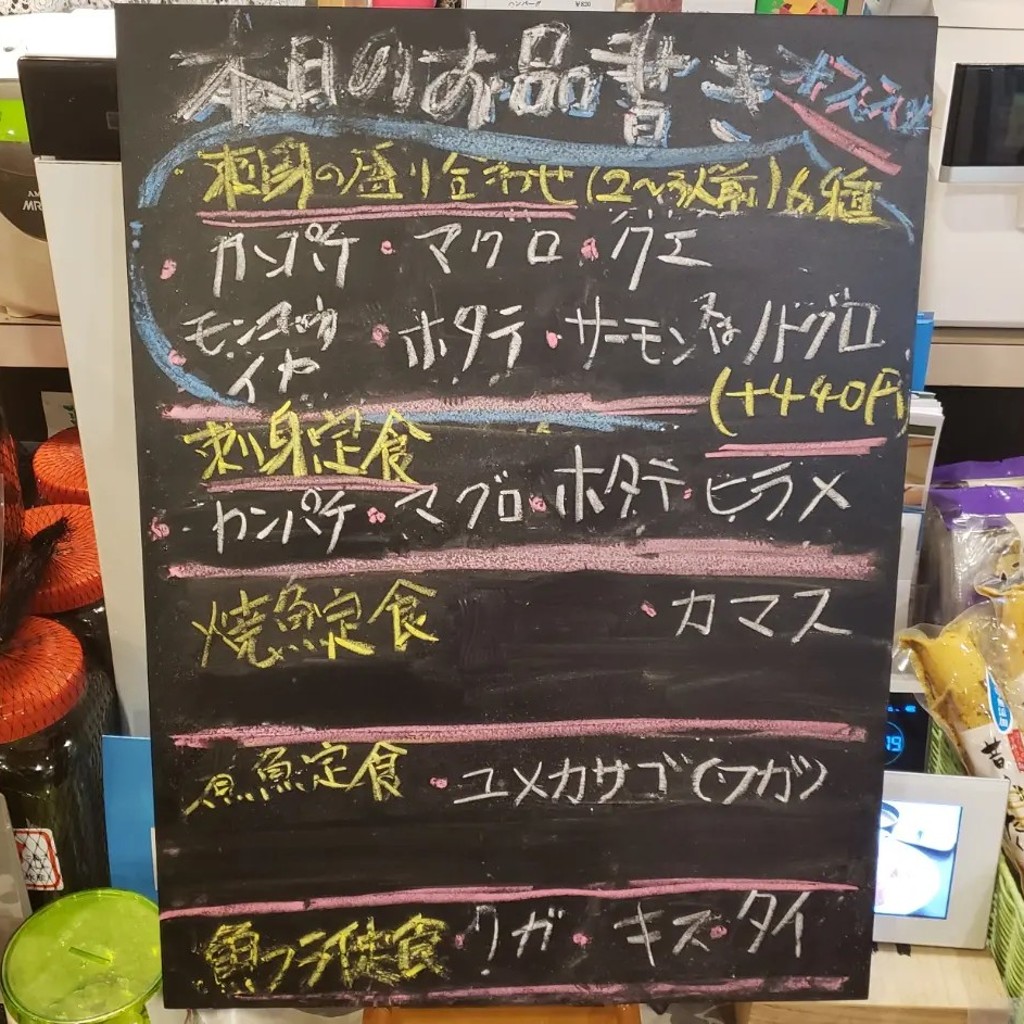 本日のお品書き オススメ
刺身の盛り合わせ(2〜3人前)6種
・カンパチ・マグロ・クエ
・モンゴウイカ・ホタテ・サーモン又はノドグロ
(+440円)
刺身定食
・カンパチ・マグロ・ホタテ・ヒラメ
焼魚定食 ・カマス
煮魚定食 ・ユメカサゴ(フガツ)
魚フライ定食・クガ・キス・タイ